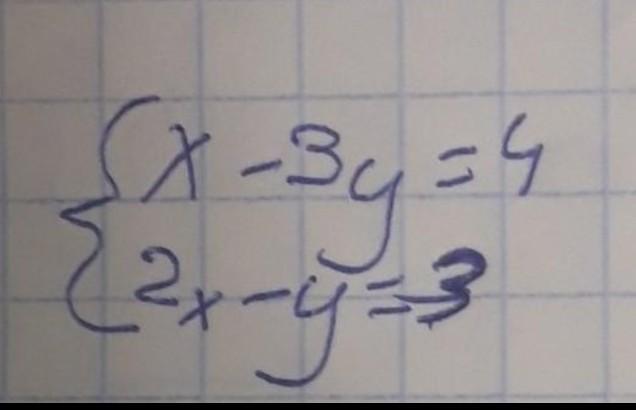 x - 3y = 4
2x - y = 3